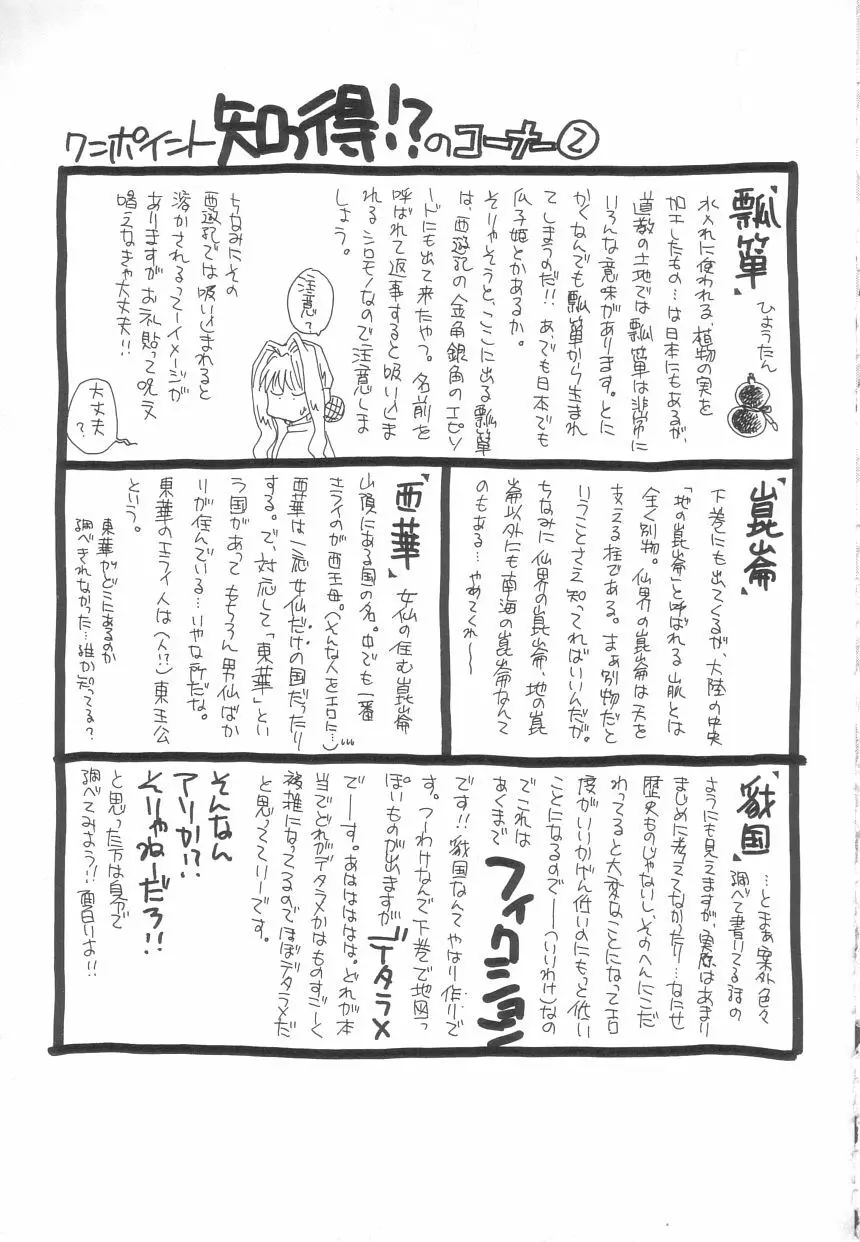 ワンポイント知っ得!?のコーナー②
『瓢箪』
ひょうたん
水入れに使われる、植物の実を
加工したもの…は日本にもあるが、
道教の土地では瓢箪は非常に
いろんな意味があります。とに
かくなんでも瓢箪から生まれ
てしまうのだ!!あ、でも日本でも
瓜子姫とかあるか。
そりゃそうと、ここに出る瓢箪
は、西遊記の金角銀角のエピソ
ードにも出て来たやつ。名前を
呼ばれて返事すると吸い込ま
れるシロモノなので注意しま
しょう。
注意?
ちなみにその
西遊記では吸い込まれると
溶かされるってーイメージが
ありますがお札貼って呪文
唱えなきゃ大丈夫!!
大丈夫?
『崑崙』
下巻にも出てくるが、大陸の中央
「地の崑崙」と呼ばれる山脈とは
全く別物。仙界の崑崙は天を
支える柱である。まぁ別物だと
いうことさえ知ってればいいんだが。
ちなみに仙界の崑崙、地の崑
崙以外にも南海の崑崙なんて
のもある…やめてくれ〜〜
『西華』
女仙の住む崑崙
山頂にある国の名。中でも一番
エライのが西王母。(そんな人をエロに…)
西華は一応女仙だけの国だったり
する。で、対応して「東華」とい
う国があってもちろん男仙ばか
りが住んでいる…いやな所だな。
東華のエライ人は(人!?)東王公
という。
東華がどこにあるのか
調べきれなかった…誰か知ってる?
『戩国』
…とまぁ案外色々
調べて書いてる話の
ようにも見えますが、実際はあまり
まじめに考えてなかったり…なたせ
歴史ものじゃないし、そのへんにこだ
わってると大変なことになってエロ
度がいいかげん低いのにもっと低い
ことになるので──(いいわけ)なの
でこれは
あくまで
フィクション
です!!国なんてやはり作りで
す。つーわけなんで下巻で地図っ
ぽいものが出ますが『デタラメ』
でーす。あはははは。どれが本
当でどれがデタラメかはものすごーく
複雑になってるのでほぼデタラメだ
と思ってていーです。
そんなん
アリか!?
そりゃねーだろ!!
と思った方は自分で
調べてみよう!!面白いよ!!